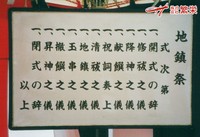 地鎮祭
式次第
一、開式の辞
一、修祓之儀
一、降神之儀
一、献饌之儀
一、祝詞奏上
一、清祓之儀
一、地鎮之儀
一、玉串之儀
一、撤饌之儀
一、昇神之儀
一、閉式の辞
以上